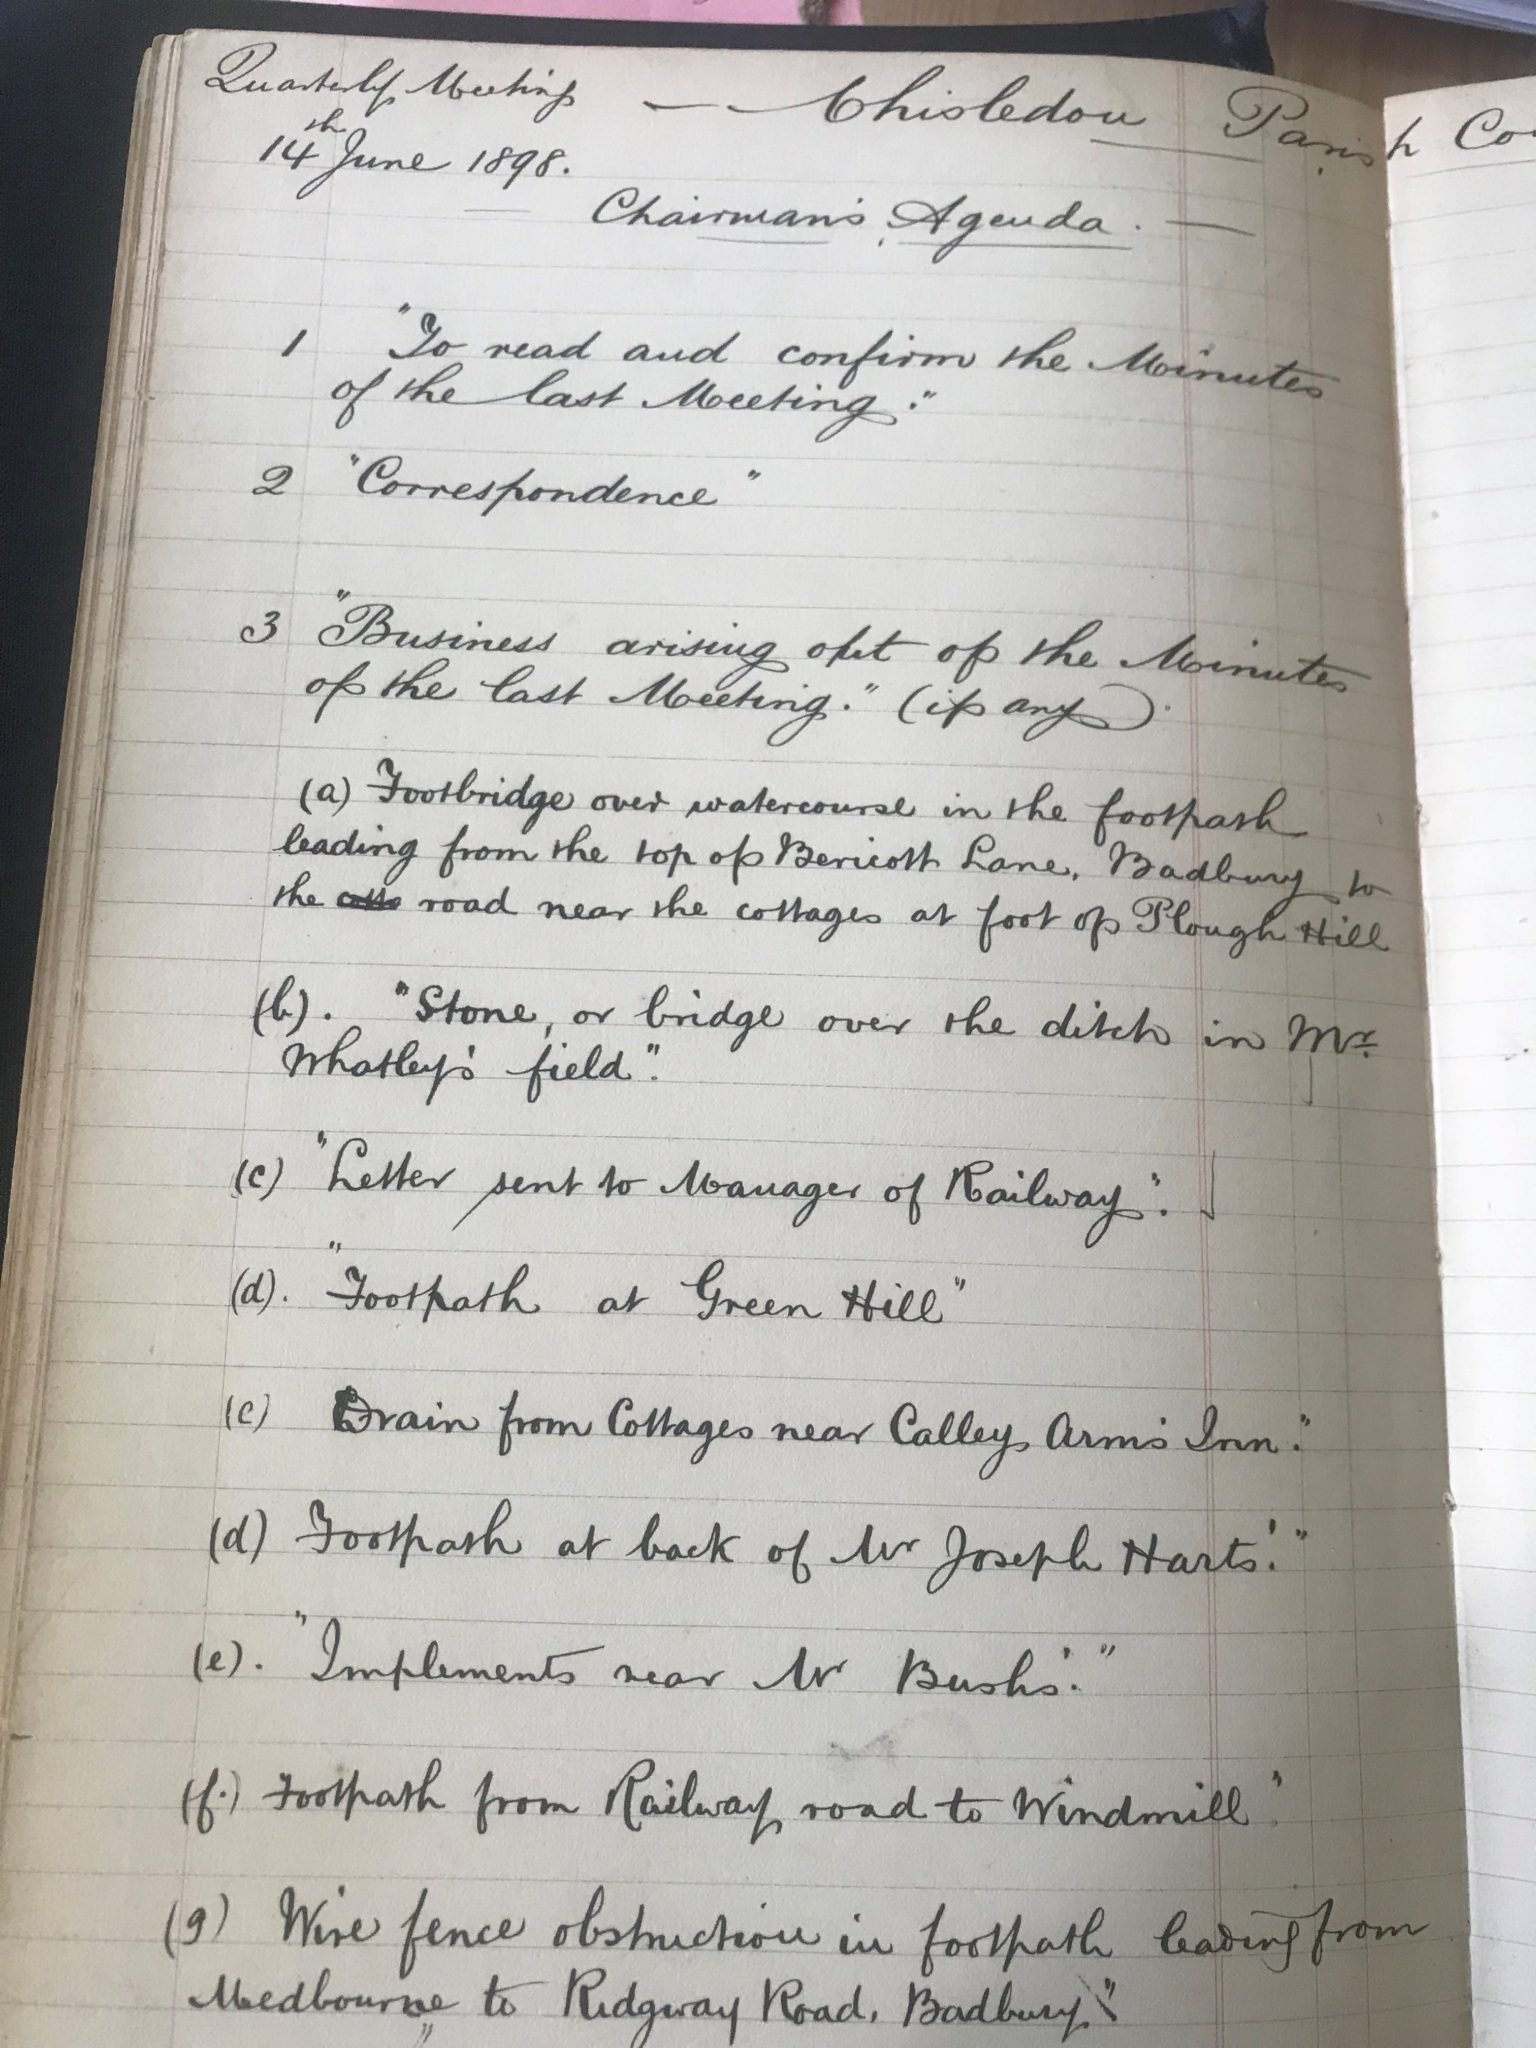 Quarterly Meeting — — Chisledon Parish Co
14th June 1898.
— Chairman's Agenda. —
1 "To read and confirm the Minutes
of the last Meeting."
2 "Correspondence"
3 "Business arising out of the Minutes
of the last Meeting." (if any).
(a) Footbridge over watercourse in the footpath
leading from the top of Bericott Lane, Badbury to
the road near the cottages at foot of Plough Hill
(b). "Stone, or bridge over the ditch in Mr.
Whatley's field".
(c) "Letter sent to Manager of Railway".
(d). "Footpath at Green Hill"
(e) Drain from Cottages near Calleys Arms Inn."
(d) Footpath at back of Mr Joseph Harts'."
(e). "Implements near Mr Bush's."
(f.) Footpath from Railway road to Windmill"
(g) Wire fence obstruction in footpath leading from
Medbourne to Ridgway Road, Badbury."